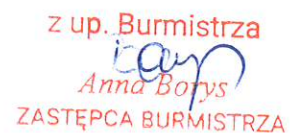 z up. Burmistrza
Anna Borys
ZASTĘPCA BURMISTRZA